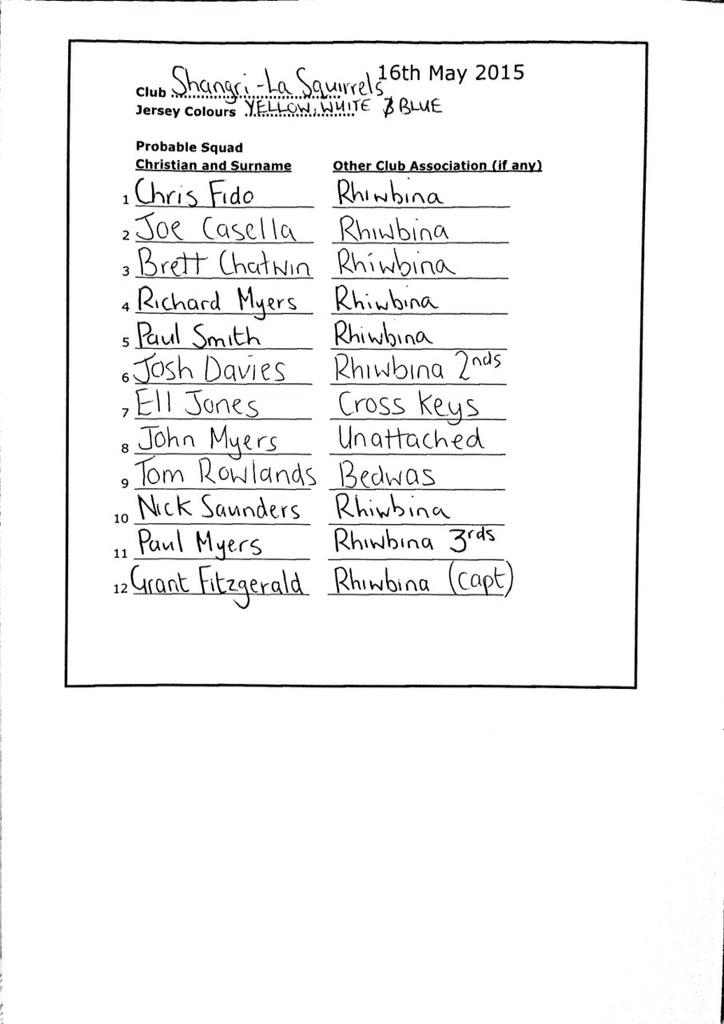 16th May 2015
Club Shangri-La Squirrels
Jersey Colours YELLOW, WHITE & BLUE
Probable Squad
Christian and Surname Other Club Association (if any)
1 Chris Fido Rhiwbina
2 Joe Casella Rhiwbina
3 Brett Chatwin Rhiwbina
4 Richard Myers Rhiwbina
5 Paul Smith Rhiwbina
6 Josh Davies Rhiwbina 2nds
7 Ell Jones Cross Keys
8 John Myers Unattached
9 Tom Rowlands Bedwas
10 Nick Saunders Rhiwbina
11 Paul Myers Rhiwbina 3rds
12 Grant Fitzgerald Rhiwbina (capt)